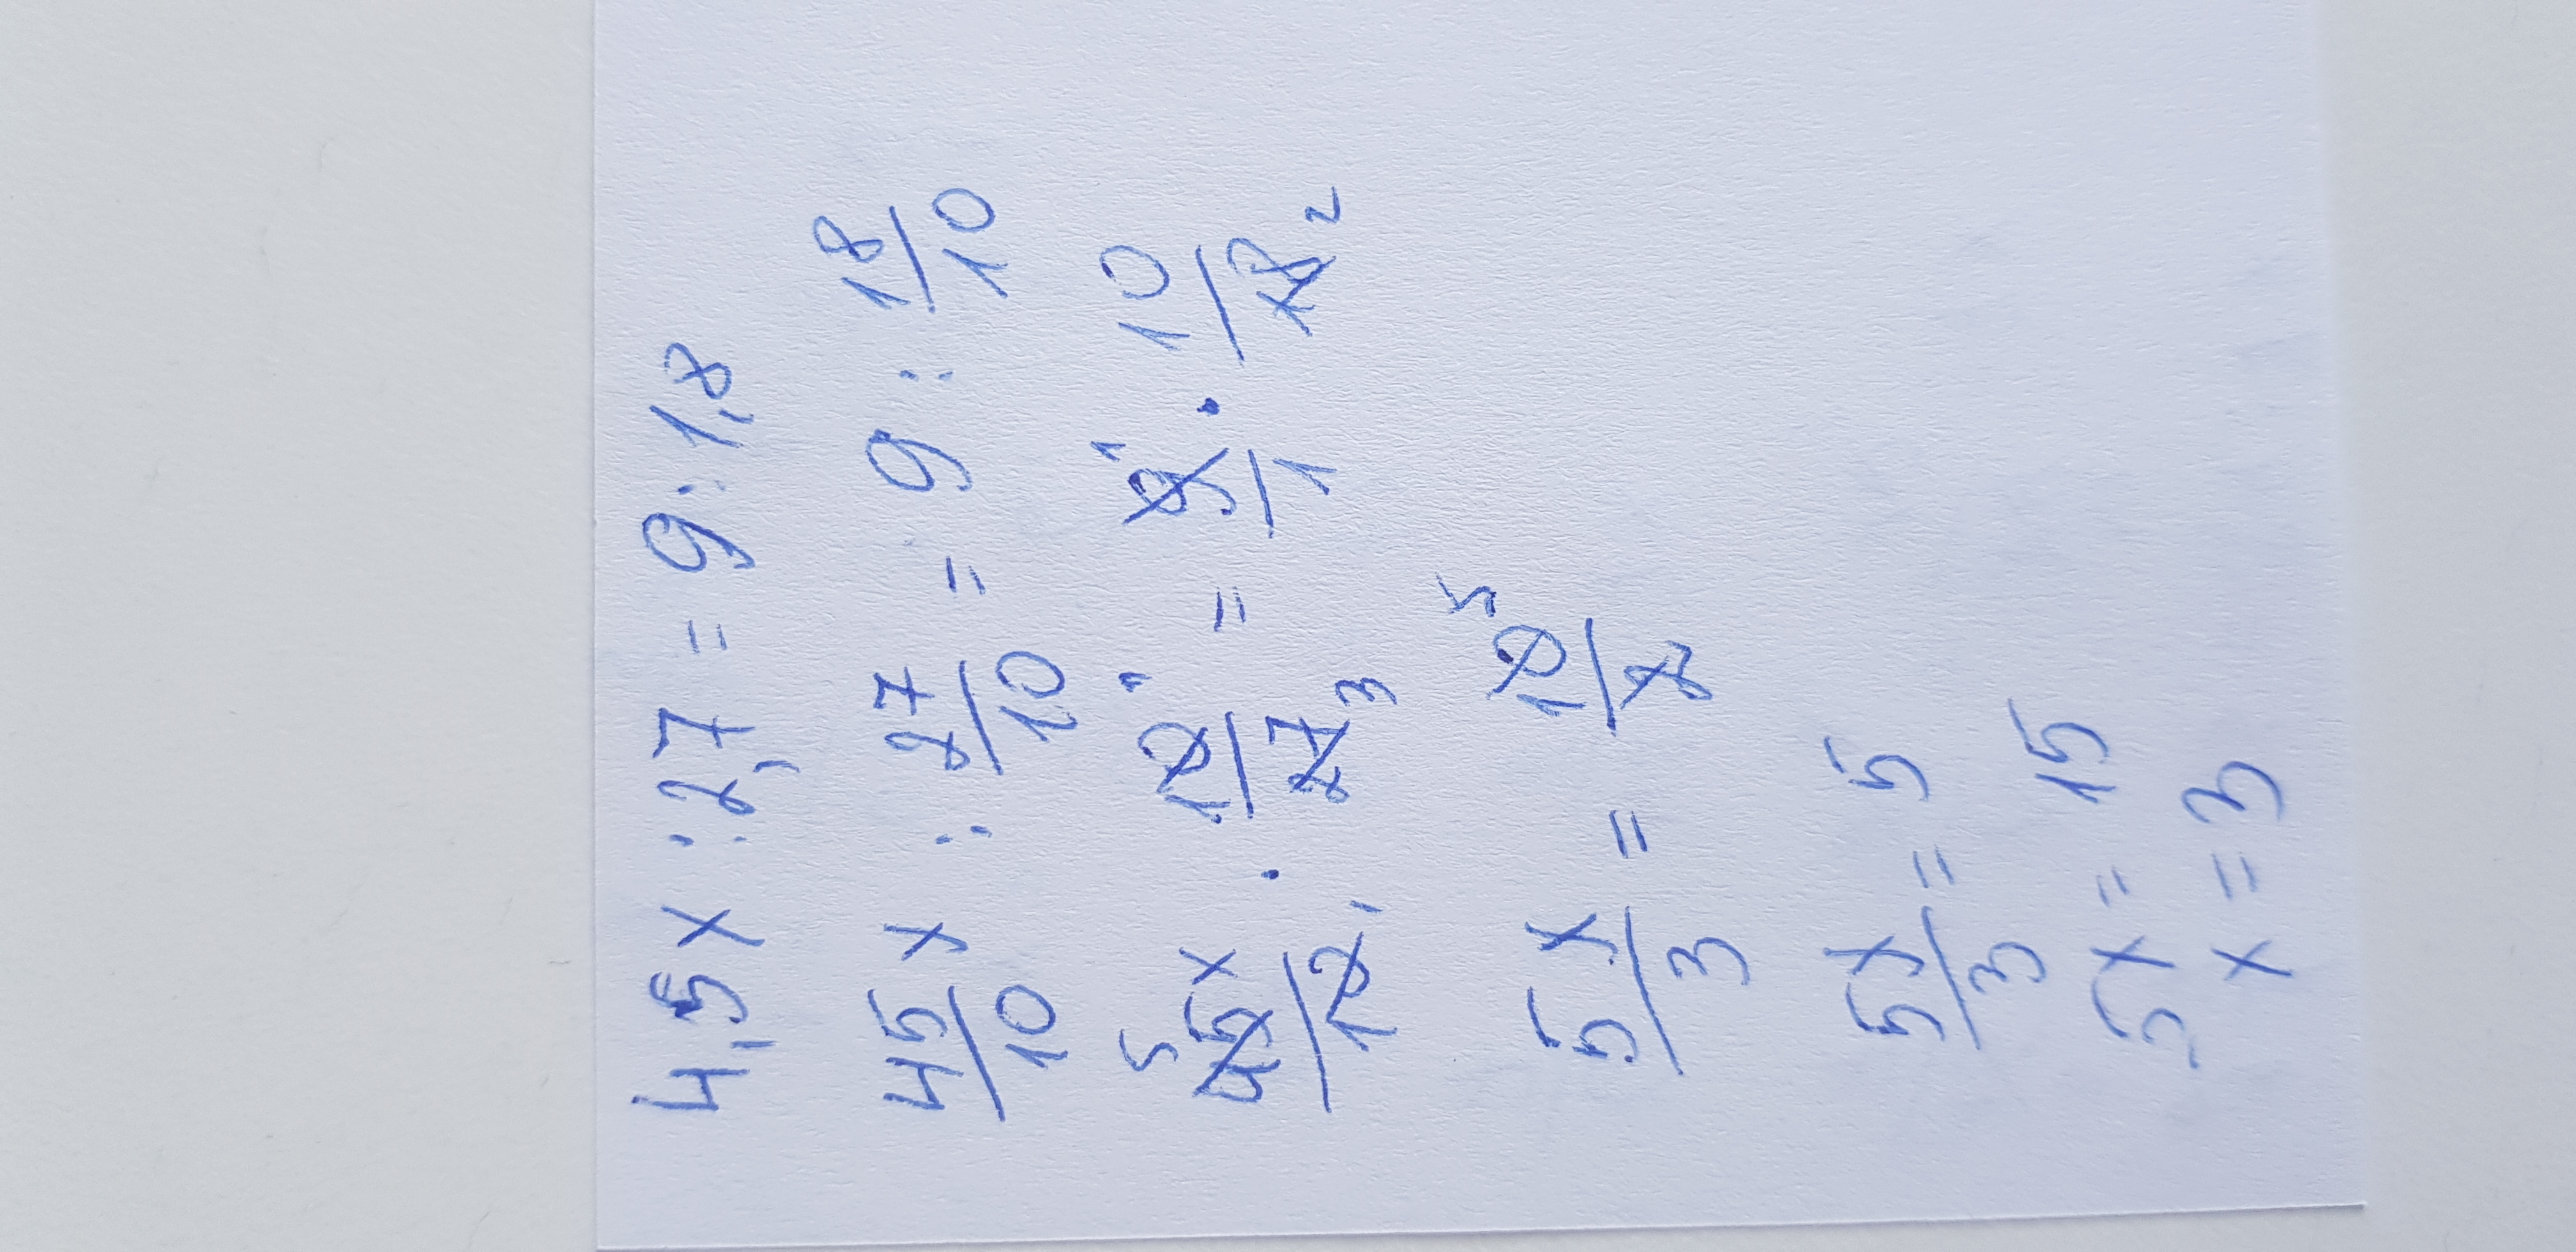 4,5x : 2,7 = 9 : 1,8
45x/10 : 27/10 = 9 : 18/10
5 45x/10 1 · 10 1/27 3 = 9 1/1 · 10/18 2
5x/3 = 10 5/2
5x/3 = 5
5x = 15
x = 3